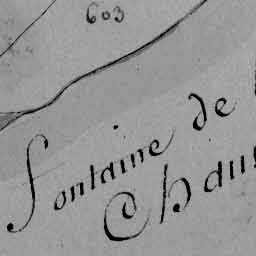 603
fontaine de
Chau